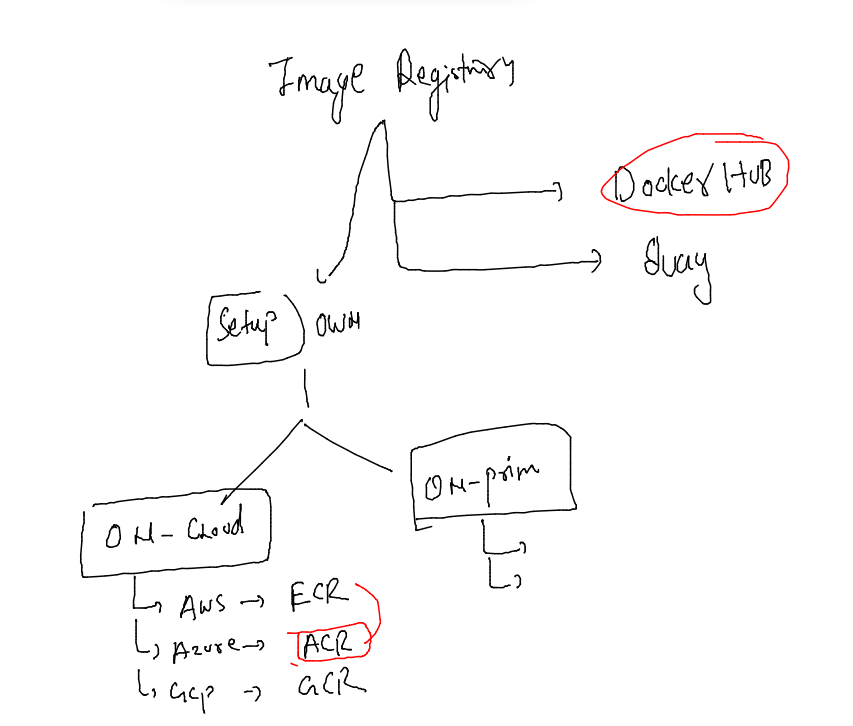 Image Registry
Docker HUB
Quay
Setup OWN
ON-prim
ON-Cloud
AWS → ECR
Azure → ACR
GCP → GCR